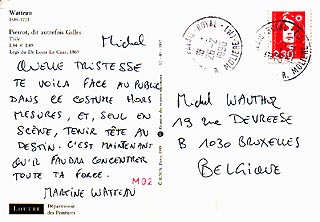 Watteau
1684-1721
Pierrot, dit autrefois Gilles
Toile
1,84 × 1,49
Legs du Dr Louis La Caze, 1867
Michel
QUELLE TRISTESSE
TE VOILA FACE AU PUBLIC
DANS CE COSTUME HORS
MESURES, ET, SEUL EN
SCÈNE, TENIR TÊTE AU
DESTIN. C'EST MAINTENANT
QU'IL FAUDRA CONCENTRER
TOUTE TA FORCE.
MARTINE WATTEAU
M02
LOUVRE
Département
des Peintures
R. MOLIERE
2,30
R. MOLIERE
Michel WAUTHIZ
19 rue DEVREESE
B 1030 BRUXELLES
BELGIQUE